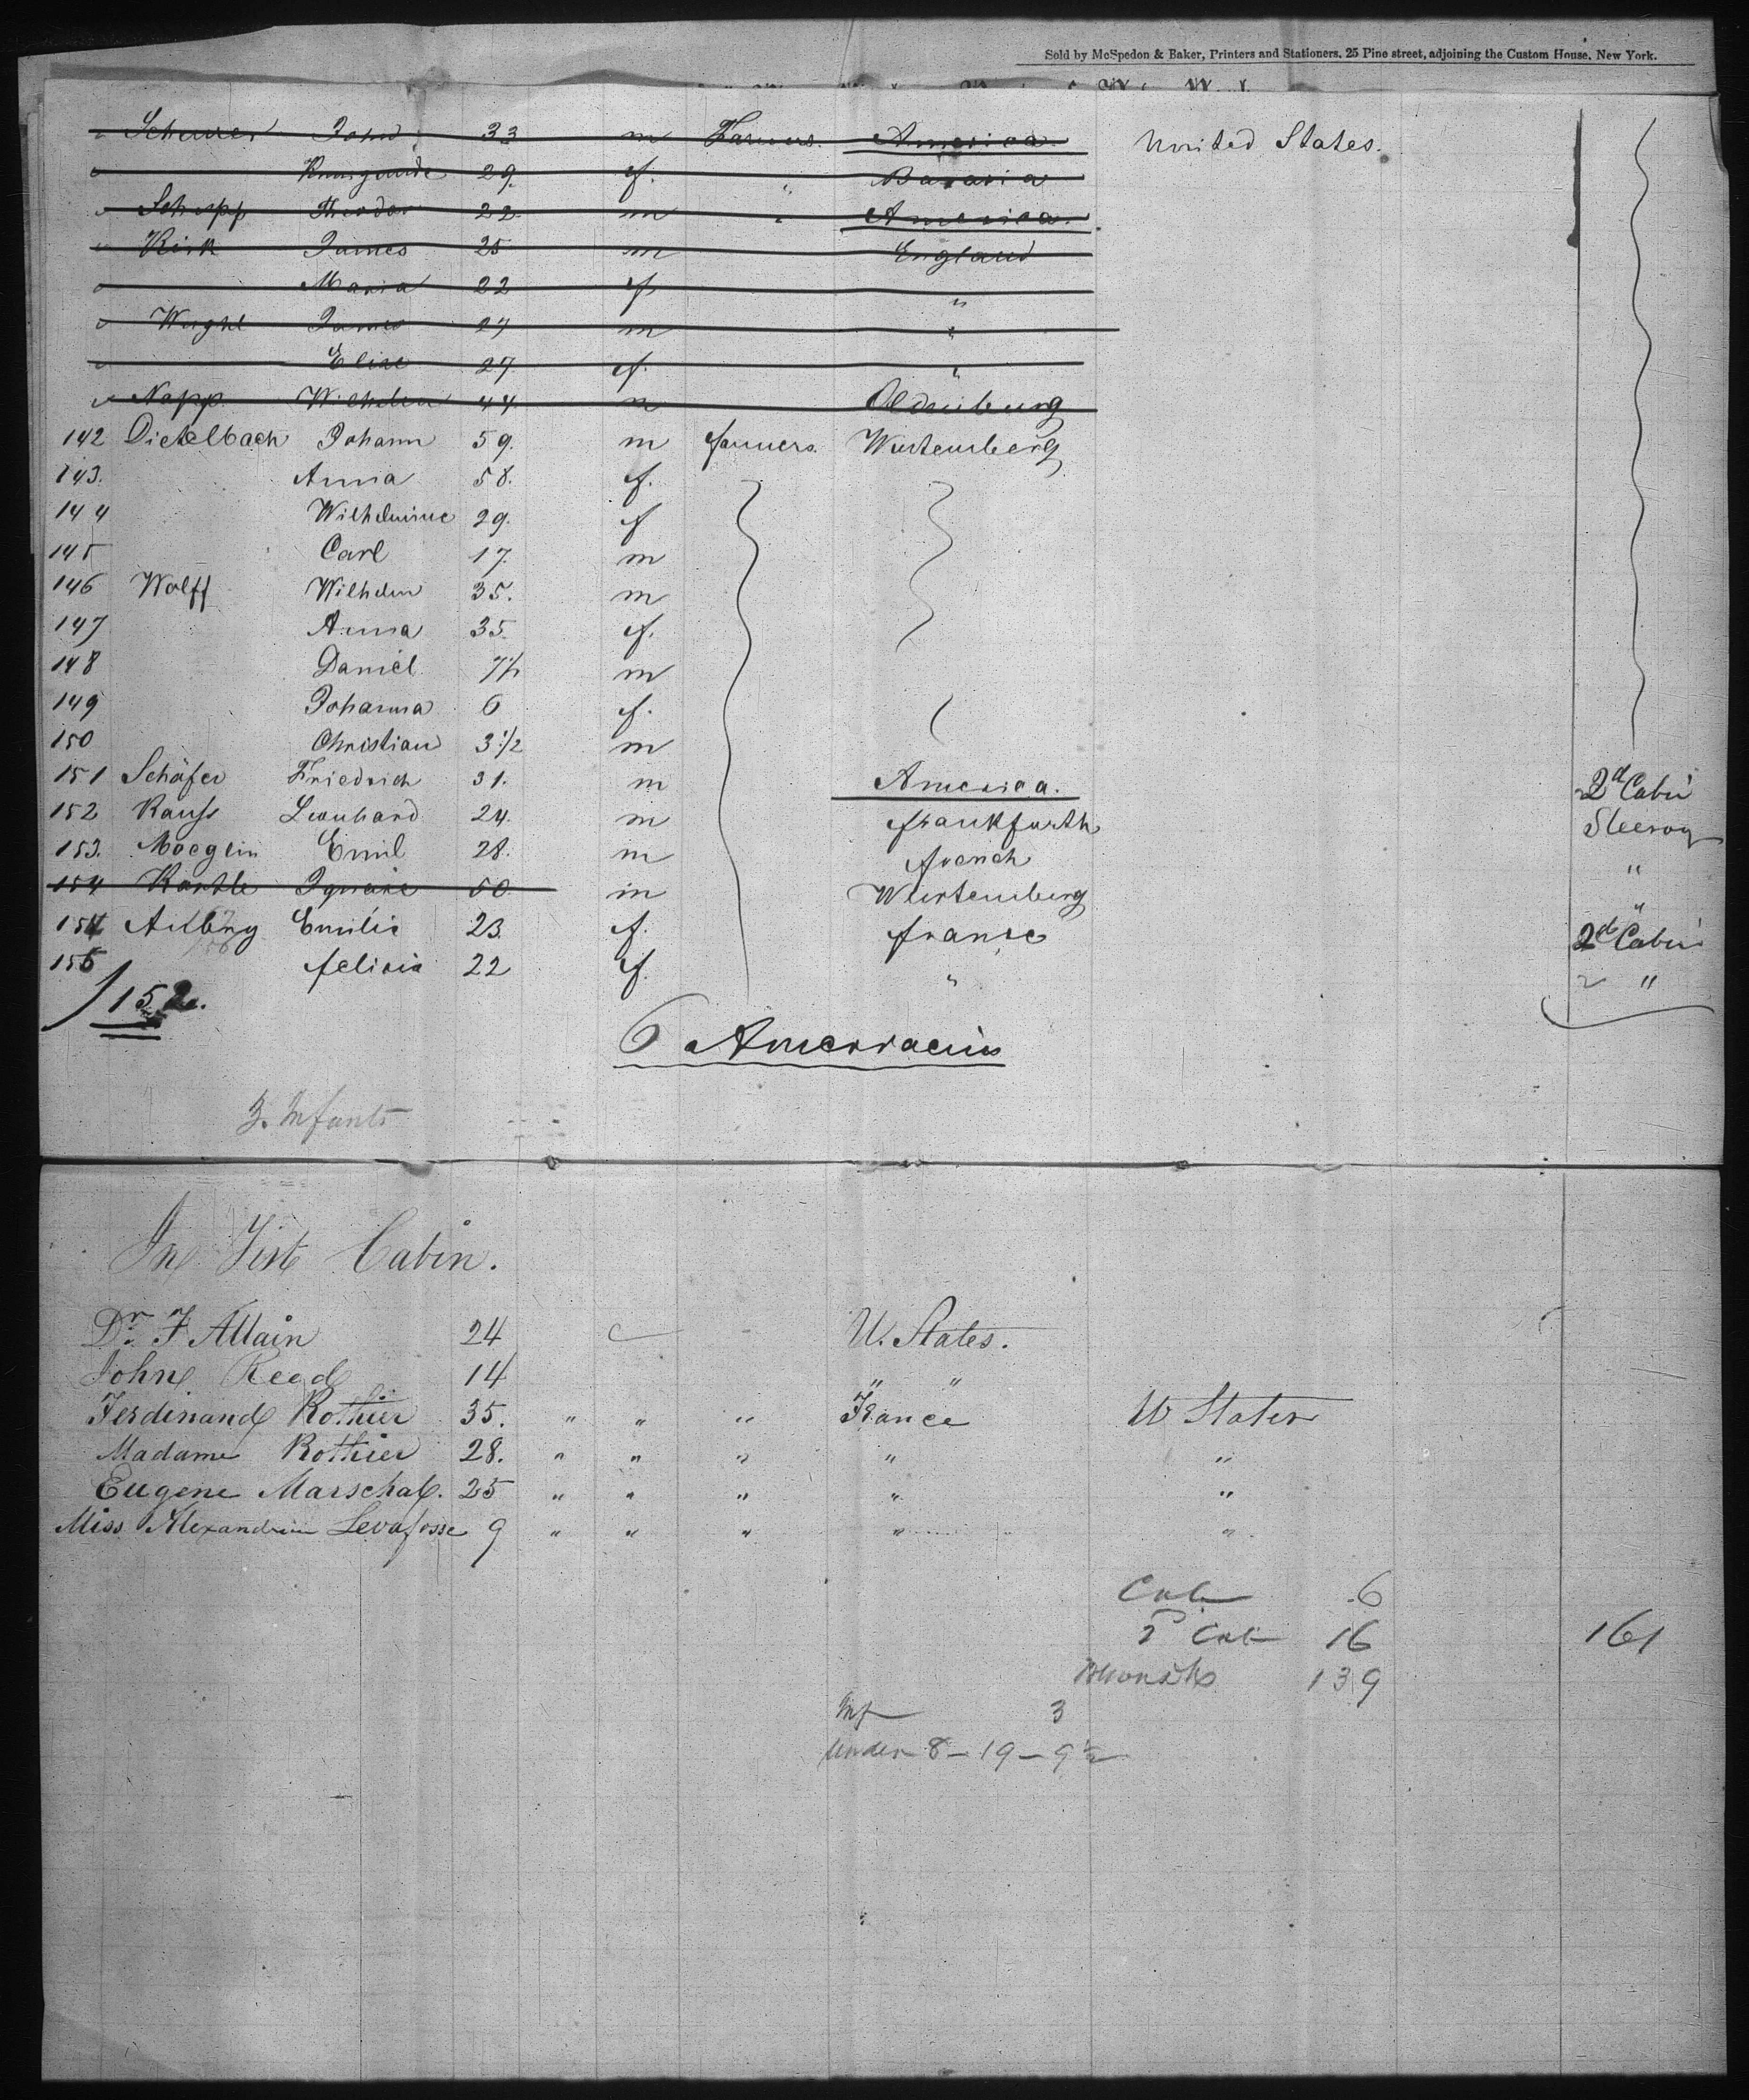 Sold by McSpedon & Baker, Printers and Stationers, 25 Pine street, adjoining the Custom House, New York.
" Scheurer John 33 m Farmers. America. United States.
" Kunigunde 29. f. " Bavaria
" Schupp Theodor 22. m " America.
" Kirk James 25 m England
" Maria 22 f "
" James 27 m "
" Elise 27 f. "
" Napp Wilhelm 44. m Oldenburg
142 Dietelbach Johann 59. m farmers. Wurtemberg
143. Anna 58. f.
144 Wilhelmine 29. f
145 Carl 17. m
146 Wolff Wilhelm 35. m
147 Anna 35. f.
148 Daniel 7½ m
149 Johanna 6 f.
150 Christian 3½ m
151 Schäfer Friedrich 31. m America. 2d Cabin
152 Leonhard 24. m Frankfurth
153. Moeglin Emil 28. m french "
154 50. m Wurtemberg "
154 Emilie 23. f. france 2d Cabin
155 felicia 22 f. " " "
152.
6 Americains
3. Infants
In First Cabin.
Dr. F Allain 24 U. States.
John Reed 14 " "
Ferdinand Rothier 35. " " " France U States
Madame Rothier 28. " " " " "
Eugene Marschal. 25 " " " " "
Miss. Alexandrin Levafosse 9 " " " " "
Cab 6
2d Cab 16 161
139
Inf 3
under 8 - 19 - 9½